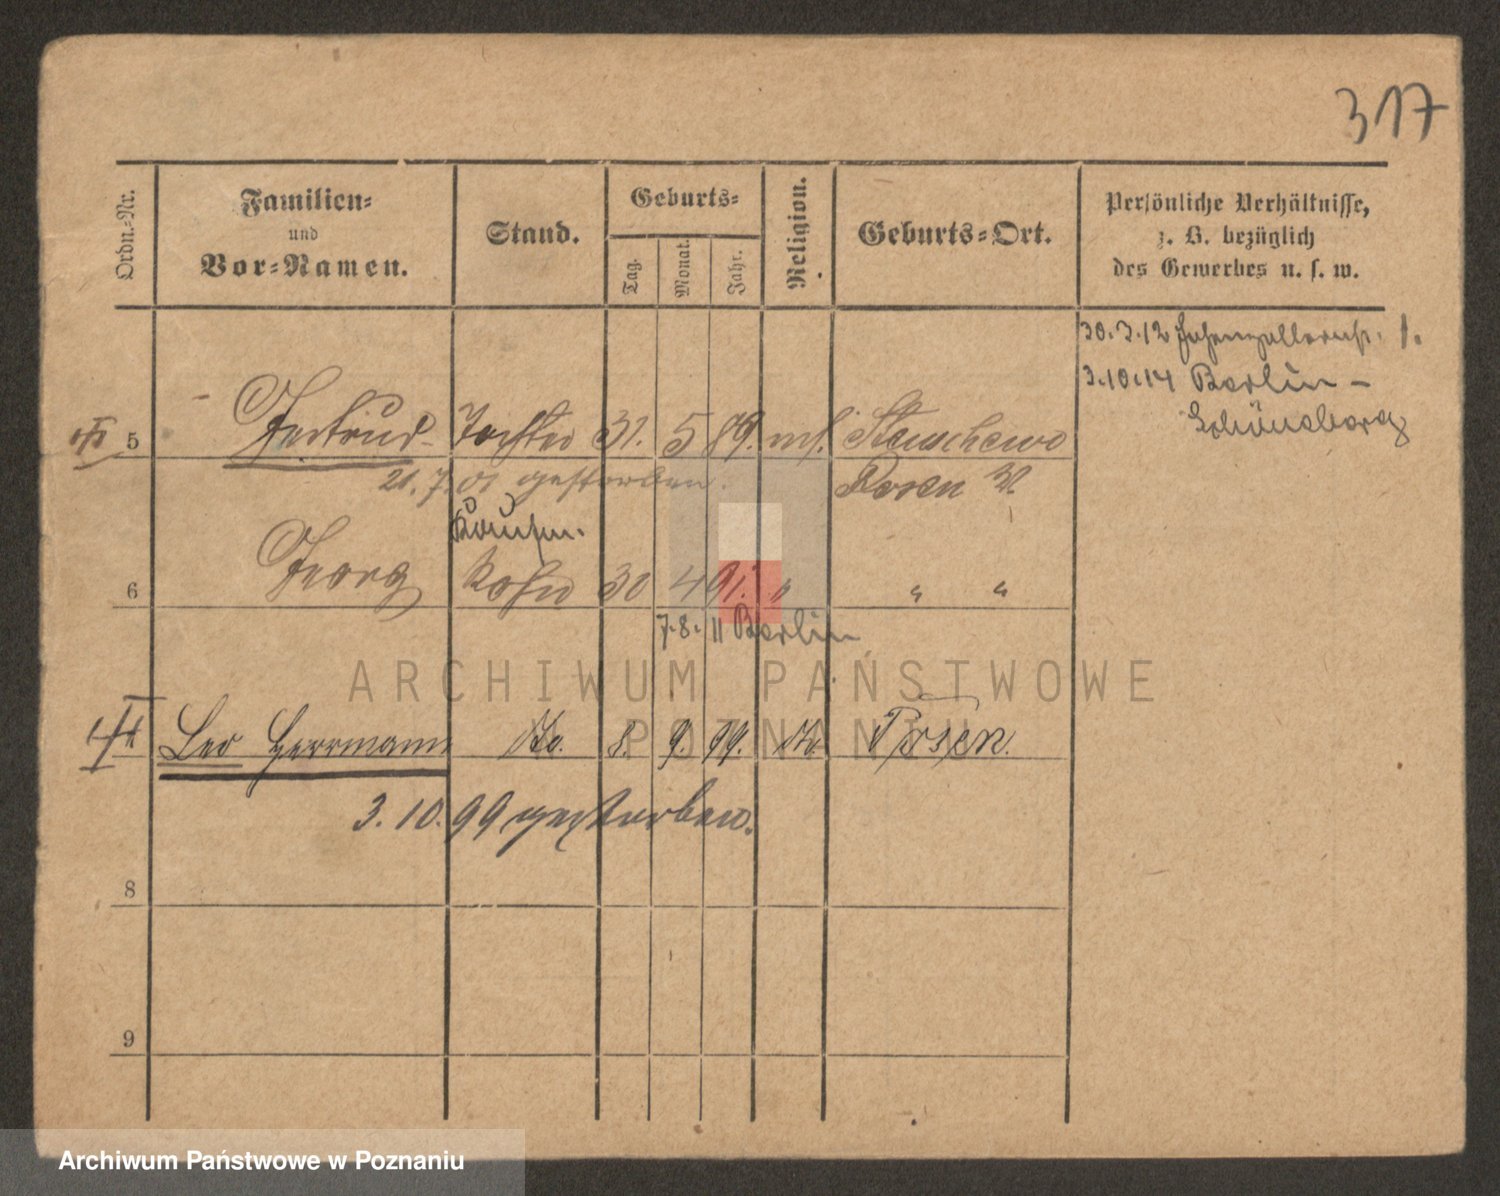 317
Ordn.-Nr.
Familien-
und
Vor-Namen.
Stand.
Geburts-
Tag.
Monat.
Jahr.
Religion.
Geburts-Ort.
Persönliche Verhältnisse,
z. B. bezüglich
des Gewerbes u. s. w.
30.3.12 Hohenzollernstr. 1.
3.10.14 Berlin-
Schöneberg
5 Gertrud Tochter 31. 5 89. mos. 
21.7.01 gestorben. Posen W.
Kaufm.
6 Georg Sohn 30 4 91. " " "
7.8.11 Berlin
Leo Herrmann do. 8. 9. 99. do. Posen.
3.10.99 gestorben.
8
9
ARCHIWUM PAŃSTWOWE
POZNANIU
Archiwum Państwowe w Poznaniu